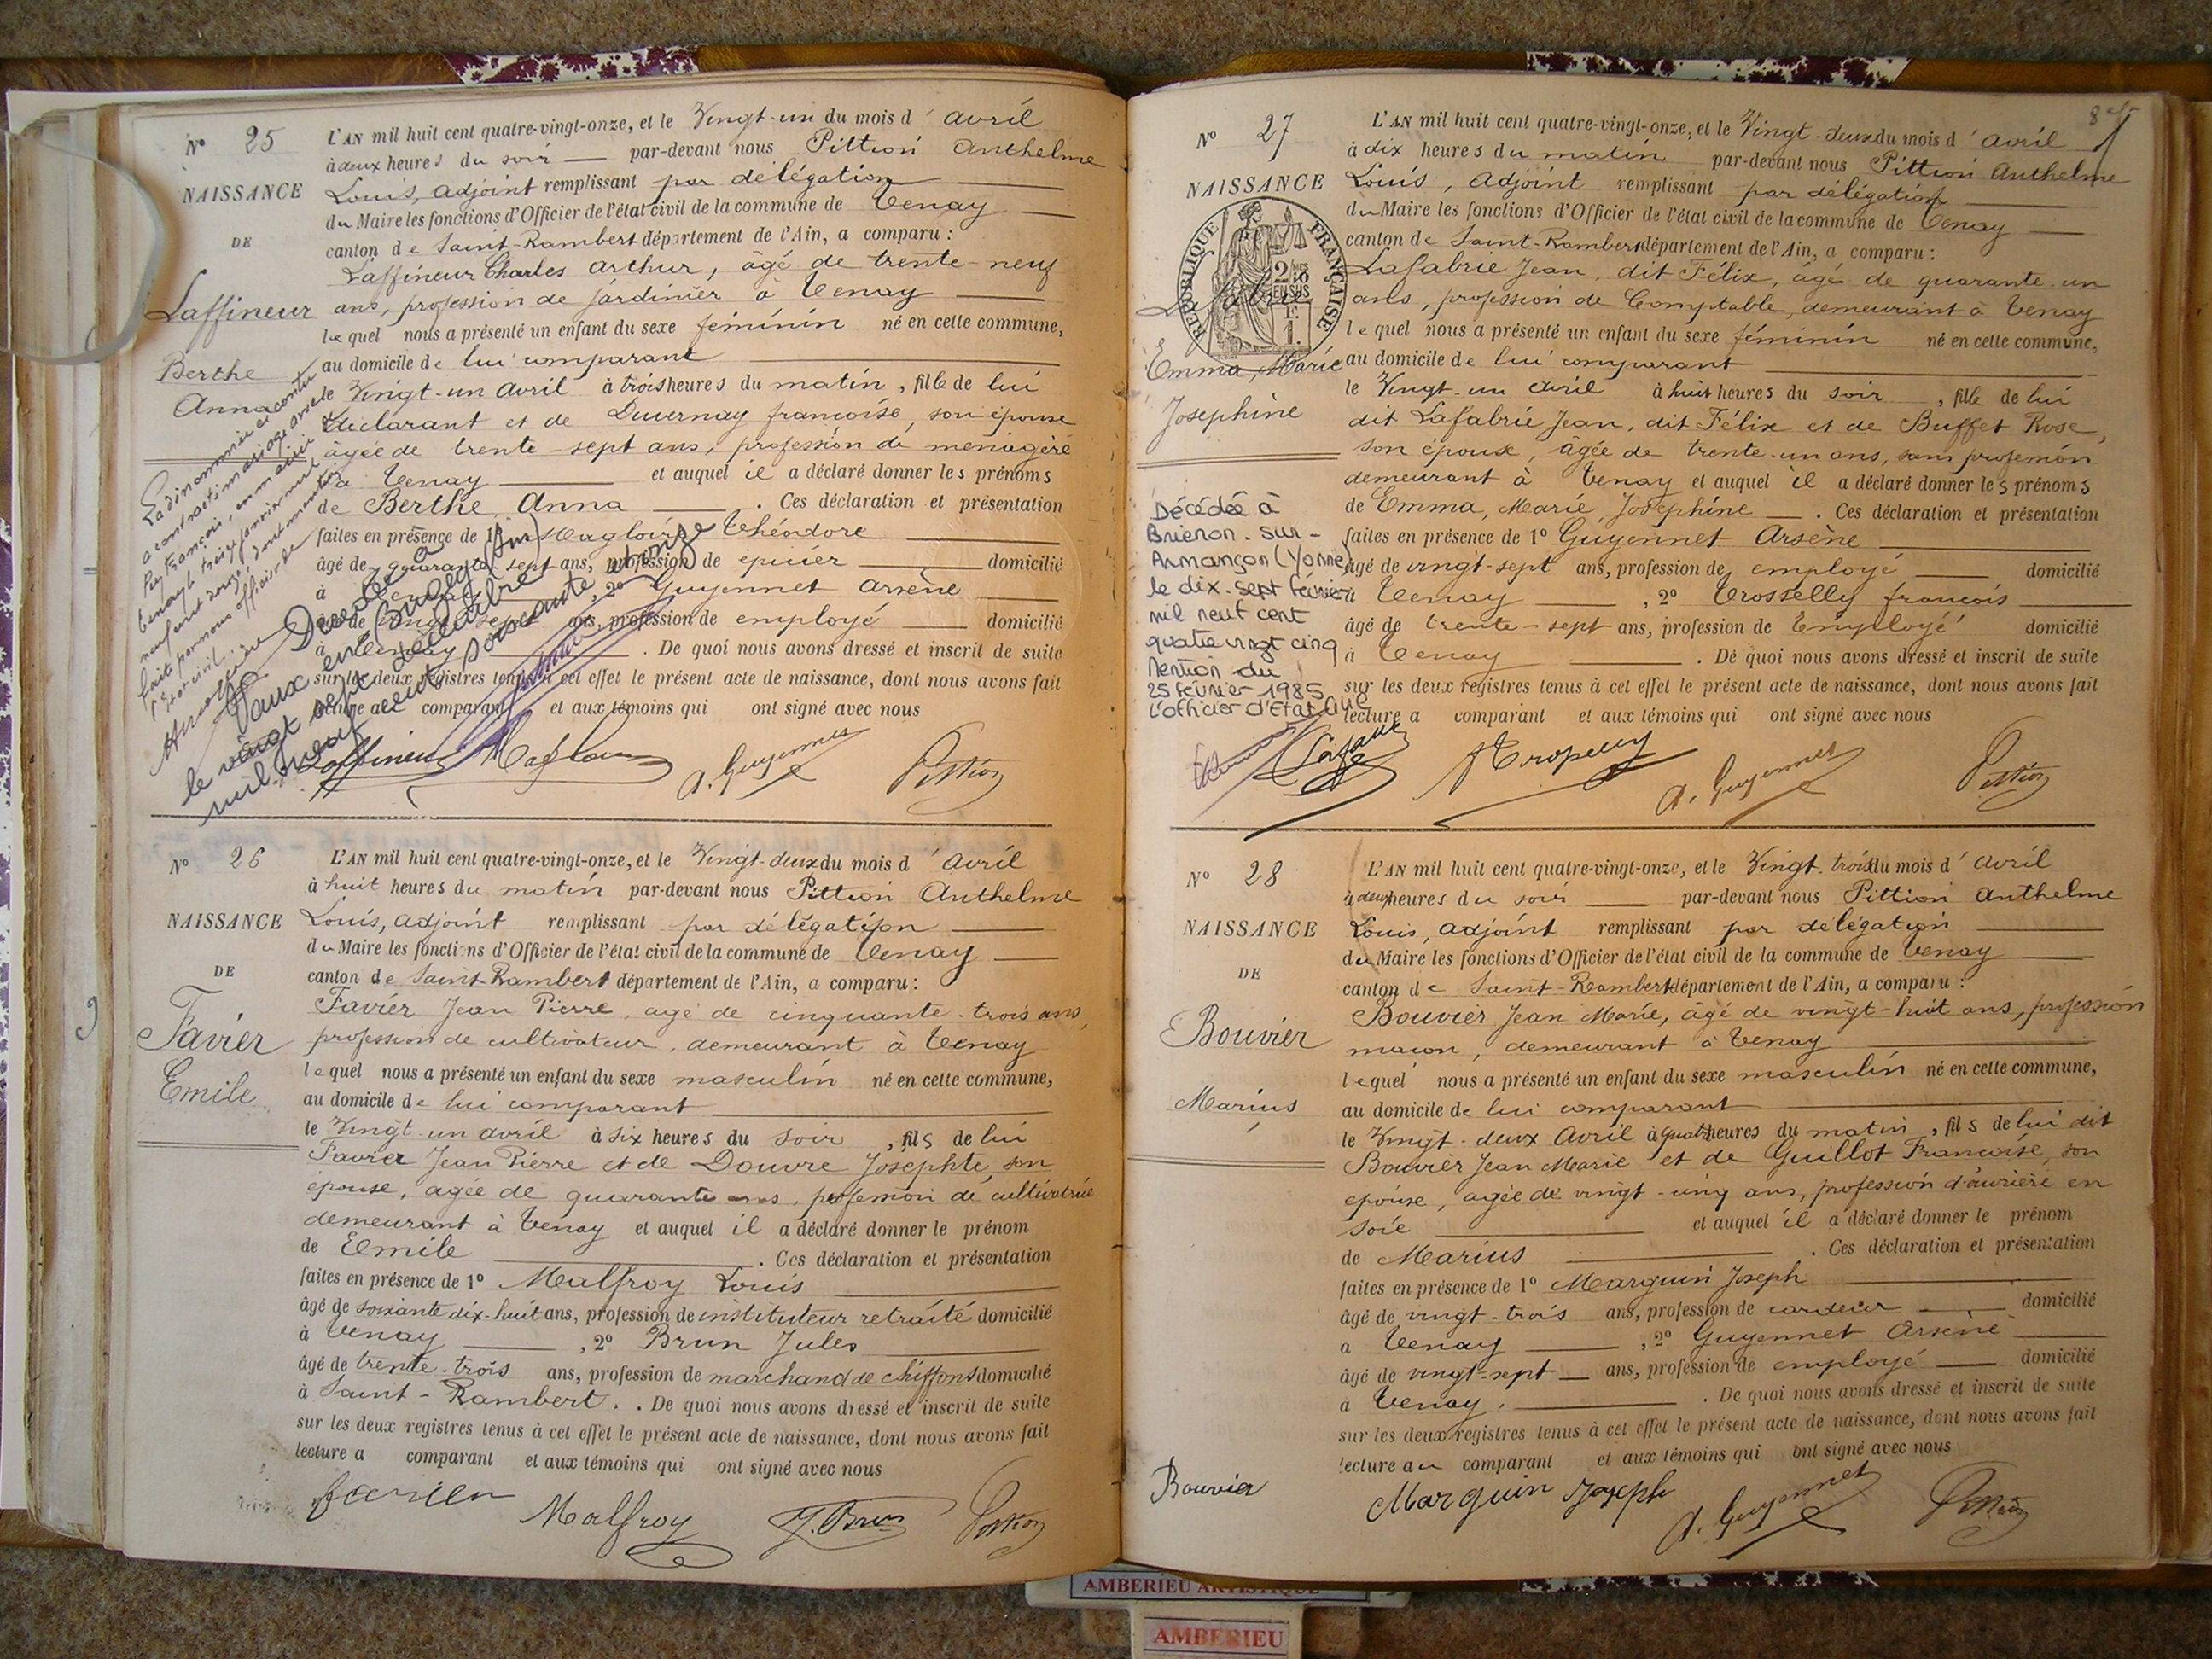 N° 25
NAISSANCE
DE
Laffineur
Berthe
Anna
L'AN mil huit cent quatre-vingt-onze, et le Vingt-un du mois d'avril
à deux heures du soir — par-devant nous Pittion Anthelme
Louis, adjoint remplissant par délégation
du Maire les fonctions d'Officier de l'état civil de la commune de Tenay
canton de Saint-Rambert département de l'Ain, a comparu :
Laffineur Charles Arthur, âgé de trente-neuf
ans, profession de jardinier à Tenay
lequel nous a présenté un enfant du sexe féminin né en cette commune,
au domicile de lui comparant
le Vingt-un avril à trois heures du matin, fille de lui
déclarant et de Duvernay françoise, son épouse
âgée de trente-sept ans, profession de ménagère
à Tenay et auquel il a déclaré donner les prénoms
de Berthe Anna . Ces déclaration et présentation
faites en présence de 1° Magloire Théodore
âgé de quarante sept ans, profession de épicier domicilié
à Tenay , 2° Guyennet Arsène
âgé de vingt-sept ans, profession de employé domicilié
à Tenay . De quoi nous avons dressé et inscrit de suite
sur les deux registres tenus à cet effet le présent acte de naissance, dont nous avons fait
lecture au comparant et aux témoins qui ont signé avec nous
Laffineur Magloire A. Guyennet Pittion
La dénommée ci contre
a contracté mariage avec
Rey françois, en mairie
Décédée à
Vaux en Bugey (Ain)
le vingt sept décembre
mil neuf cent soixante et onze
N° 26
NAISSANCE
DE
Favier
Emile
L'AN mil huit cent quatre-vingt-onze, et le Vingt-deux du mois d'avril
à huit heures du matin par-devant nous Pittion Anthelme
Louis, adjoint remplissant par délégation
du Maire les fonctions d'Officier de l'état civil de la commune de Tenay
canton de Saint-Rambert département de l'Ain, a comparu :
Favier Jean Pierre, agé de cinquante-trois ans,
profession de cultivateur, demeurant à Tenay
lequel nous a présenté un enfant du sexe masculin né en cette commune,
au domicile de lui comparant
le Vingt-un avril à six heures du soir , fils de lui
Favier Jean Pierre et de Douvre Josephte, son
épouse, agée de quarante ans, profession de cultivatrice
demeurant à Tenay et auquel il a déclaré donner le prénom
de Emile . Ces déclaration et présentation
faites en présence de 1° Malfroy Louis
âgé de soixante dix-huit ans, profession de instituteur retraité domicilié
à Tenay , 2° Brun Jules
âgé de trente-trois ans, profession de marchand de chiffons domicilié
à Saint-Rambert. . De quoi nous avons dressé et inscrit de suite
sur les deux registres tenus à cet effet le présent acte de naissance, dont nous avons fait
lecture a comparant et aux témoins qui ont signé avec nous
favier Malfroy J. Brun Pittion
N° 27
NAISSANCE
RÉPUBLIQUE FRANÇAISE
2/10 EN SUS
F. 1.
Emma, Marie
Josephine
L'AN mil huit cent quatre-vingt-onze, et le Vingt-deux du mois d'avril
à dix heures du matin par-devant nous Pittion Anthelme
Louis, adjoint remplissant par délégation
du Maire les fonctions d'Officier de l'état civil de la commune de Tenay
canton de Saint-Rambert département de l'Ain, a comparu :
Lafabrie Jean, dit Félix, agé de quarante-un
ans, profession de Comptable, demeurant à Tenay
lequel nous a présenté un enfant du sexe féminin né en cette commune,
au domicile de lui comparant
le Vingt-un avril à huit heures du soir , fille de lui
dit Lafabrie Jean, dit Félix et de Buffet Rose,
son épouse, âgée de trente-un ans, sans profession
demeurant à Tenay et auquel il a déclaré donner les prénoms
de Emma, Marie, Joséphine . Ces déclaration et présentation
faites en présence de 1° Guyennet Arsène
âgé de vingt-sept ans, profession de employé domicilié
à Tenay , 2° Trosselly françois
âgé de trente-sept ans, profession de Employé domicilié
à Tenay . De quoi nous avons dressé et inscrit de suite
sur les deux registres tenus à cet effet le présent acte de naissance, dont nous avons fait
lecture a comparant et aux témoins qui ont signé avec nous
A. Guyennet Pittion
Décédée à
Brienon-sur-
Armançon (Yonne)
le dix-sept février
mil neuf cent
quatre vingt cinq
Mention du
25 février 1985
L'officier d'Etat Civil
N° 28
NAISSANCE
DE
Bouvier
Marius
L'AN mil huit cent quatre-vingt-onze, et le Vingt-trois du mois d'avril
à deux heures du soir par-devant nous Pittion Anthelme
Louis, adjoint remplissant par délégation
du Maire les fonctions d'Officier de l'état civil de la commune de Tenay
canton de Saint-Rambert département de l'Ain, a comparu :
Bouvier Jean Marie, âgé de vingt-huit ans, profession
maçon, demeurant à Tenay
lequel nous a présenté un enfant du sexe masculin né en cette commune,
au domicile de lui comparant
le Vingt-deux Avril à quatre heures du matin, fils de lui dit
Bouvier Jean Marie et de Guillot Françoise, son
épouse, agée de vingt-cinq ans, profession d'ouvrière en
soie et auquel il a déclaré donner le prénom
de Marius . Ces déclaration et présentation
faites en présence de 1° Marguin Joseph
âgé de vingt-trois ans, profession de cardeur domicilié
à Tenay , 2° Guyennet Arsène
âgé de vingt-sept ans, profession de employé domicilié
à Tenay. . De quoi nous avons dressé et inscrit de suite
sur les deux registres tenus à cet effet le présent acte de naissance, dont nous avons fait
lecture au comparant et aux témoins qui ont signé avec nous
Bouvier Marguin Joseph A. Guyennet Pittion
AMBERIEU ARTISTIQUE
AMBERIEU